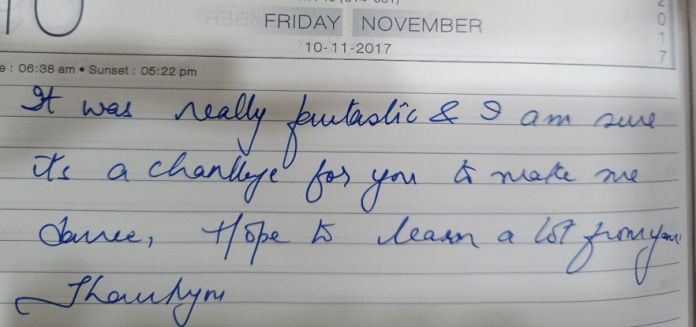 10
FRIDAY NOVEMBER
10-11-2017
2017
e : 06:38 am • Sunset : 05:22 pm
It was really fantastic & I am sure
its a challenge for you to make me
dance, Hope to learn a lot from you
Thankyou